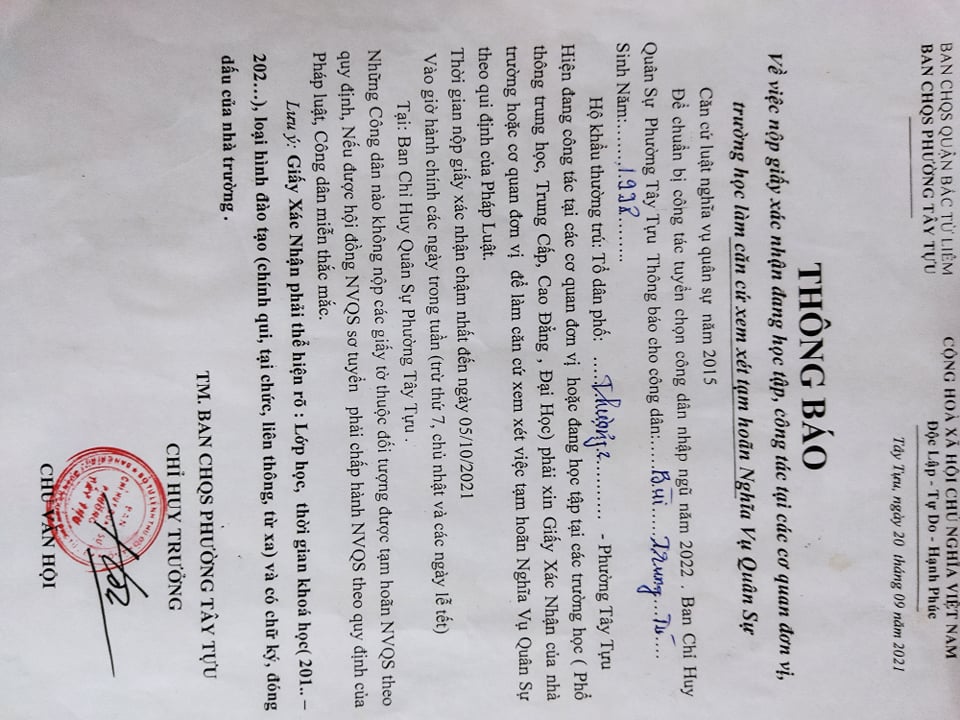 BAN CHQS QUẬN BẮC TỪ LIÊM
BAN CHQS PHƯỜNG TÂY TỰU
CỘNG HOÀ XÃ HỘI CHỦ NGHĨA VIỆT NAM
Độc Lập - Tự Do - Hạnh Phúc
Tây Tựu, ngày 20 tháng 09 năm 2021
THÔNG BÁO
Về việc nộp giấy xác nhận đang học tập, công tác tại các cơ quan đơn vị,
trường học làm căn cứ xem xét tạm hoãn Nghĩa Vụ Quân Sự
Căn cứ luật nghĩa vụ quân sự năm 2015
Để chuẩn bị công tác tuyển chọn công dân nhập ngũ năm 2022 . Ban Chỉ Huy
Quân Sự Phường Tây Tựu Thông báo cho công dân:.....Bùi.....Trung...Tú....
Sinh Năm:.......1998........
Hộ khẩu thường trú: Tổ dân phố: .....Thượng.2.......... - Phường Tây Tựu
Hiện đang công tác tại các cơ quan đơn vị hoặc đang học tập tại các trường học ( Phổ
thông trung học, Trung Cấp, Cao Đẳng , Đại Học) phải xin Giấy Xác Nhận của nhà
trường hoặc cơ quan đơn vị để làm căn cứ xem xét việc tạm hoãn Nghĩa Vụ Quân Sự
theo qui định của Pháp Luật.
Thời gian nộp giấy xác nhận chậm nhất đến ngày 05/10/2021
Vào giờ hành chính các ngày trong tuần (trừ thứ 7, chủ nhật và các ngày lễ tết)
Tại: Ban Chỉ Huy Quân Sự Phường Tây Tựu .
Những Công dân nào không nộp các giấy tờ thuộc đối tượng được tạm hoãn NVQS theo
quy định, Nếu được hội đồng NVQS sơ tuyển phải chấp hành NVQS theo quy định của
Pháp luật, Công dân miễn thắc mắc.
Lưu ý: Giấy Xác Nhận phải thể hiện rõ : Lớp học, thời gian khoá học( 201.. –
202...), loại hình đào tạo (chính qui, tại chức, liên thông, từ xa) và có chữ ký, đóng
dấu của nhà trường .
TM. BAN CHQS PHƯỜNG TÂY TỰU
CHỈ HUY TRƯỞNG
BAN
CHỈ HUY QUÂN SỰ
PHƯỜNG
TÂY TỰU
CHU VĂN HỘI